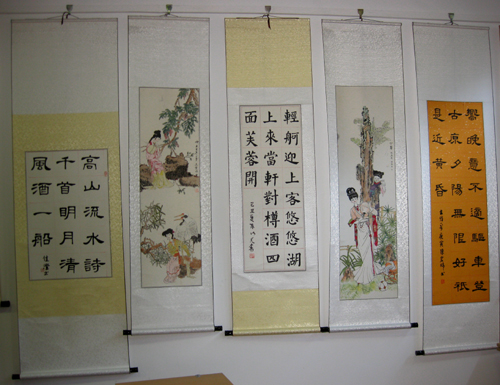 高山流水詩
千首明月清
風酒一船
輕舸迎上客悠悠湖
上來當軒對樽酒四
面芙蓉開
嚮晚意不適驅車登
古原夕陽無限好祇
是近黃昏